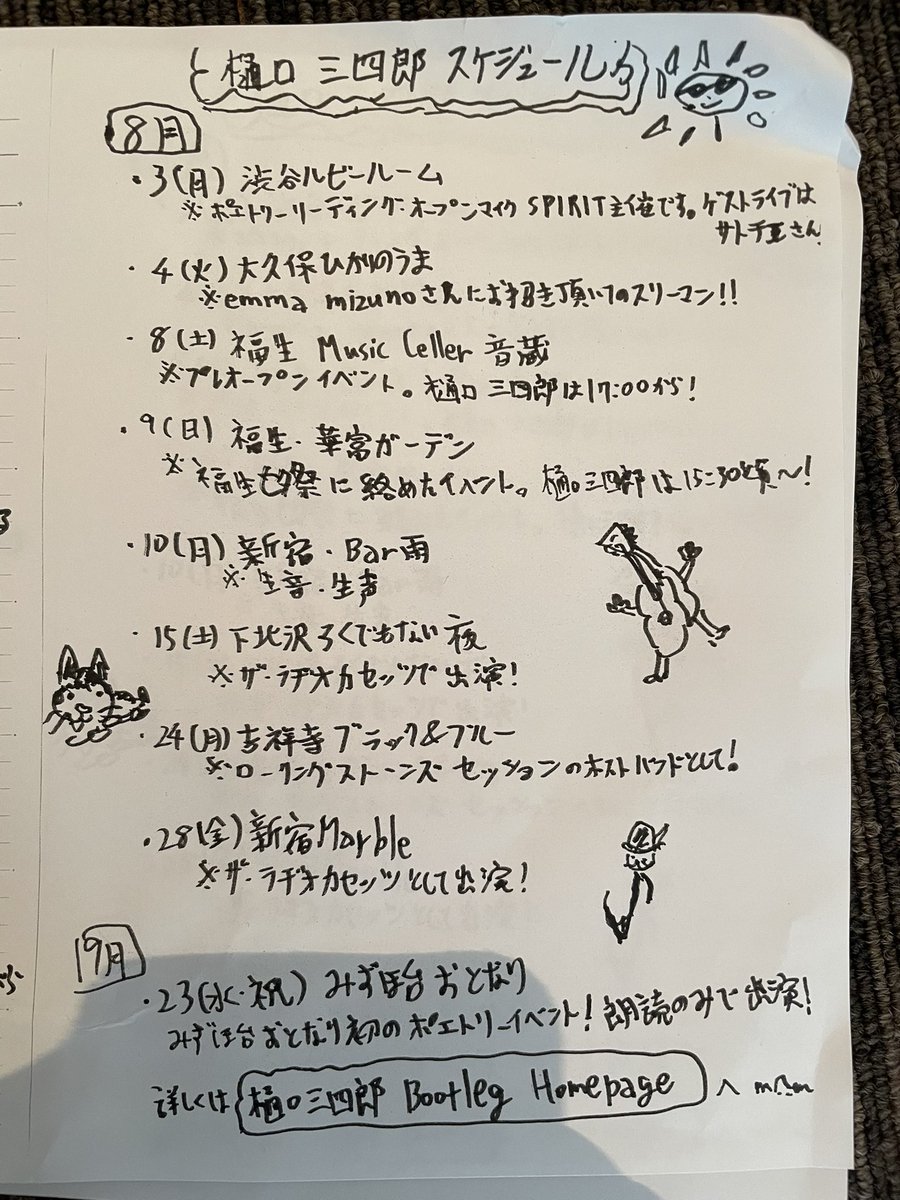 樋口 三四郎 スケジュール♪
8月
・3(月) 渋谷ルビールーム
※ポエトリーリーディング・オープンマイク SPIRIT主催です。ゲストライブは
サトチエさん
・4(火) 大久保ひかりのうま
※emma mizunoさんにお招き頂いてのスリーマン!!
・8(土) 福生 Music Celler 音蔵
※プレオープンイベント。樋口 三四郎は17:00から!
・9(日) 福生・華富ガーデン
※福生七夕祭に絡めたイベント。樋口三四郎は15:30頃〜!
・10(月) 新宿・Bar雨
※生音・生声
・15(土) 下北沢ろくでもない夜
※ザ・ラヂオカセッツで出演!
・24(月) 吉祥寺 ブラック&ブルー
※ローリングストーンズ セッションのホストバンドとして!
・28(金) 新宿Marble
※ザ・ラヂオカセッツとして出演!
9月
・23(水・祝) みずほ台 おとなり
みずほ台おとなり初のポエトリーイベント! 朗読のみで出演!
詳しくは 樋口三四郎 Bootleg Homepage へ m(_ _)m